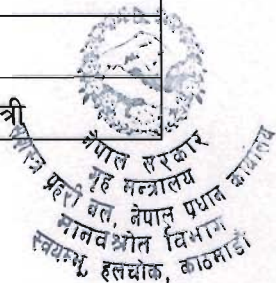 त्री
नेपाल सरकार
गृह मन्त्रालय
सशस्त्र प्रहरी बल, नेपाल प्रधान कार्यालय
मानवश्रोत विभाग
स्वयम्भू, हलचोक, काठमाडौं